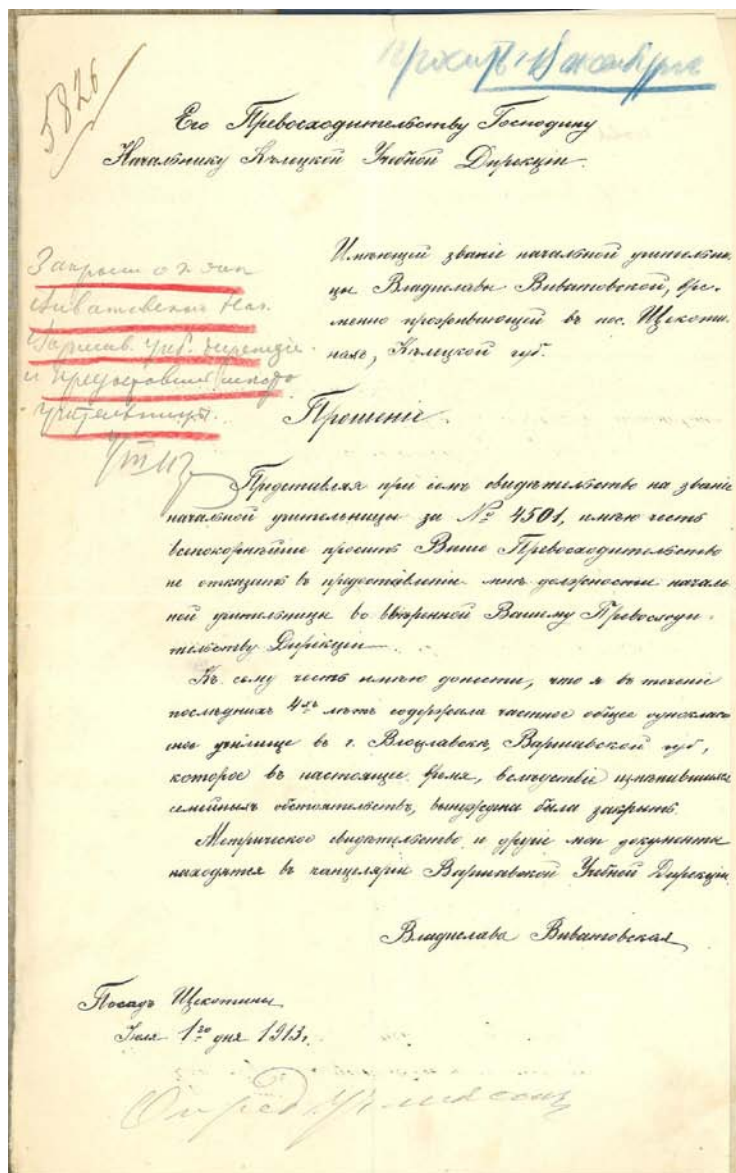 5826
Его Превосходительству Господину
Начальнику Кѣлецкой Учебной Дирекціи.
Имѣющей званіе начальной учительни-
цы Владиславы Виватовской, вре-
менно проживающей въ пос. Щекоци-
нахъ, Кѣлецкой губ.
Прошеніе.
Представляя при семъ свидѣтельство на званіе
начальной учительницы за № 4501, имѣю честь
всепокорнѣйше просить Ваше Превосходительство
не отказать въ предоставленіи мнѣ должности началь-
ной учительницы во ввѣренной Вашему Превосходи-
тельству Дирекціи.
Къ сему честь имѣю донести, что я въ теченіе
послѣднихъ 4хъ лѣтъ содержала частное общее однокласс-
ное училище въ г. Влоцлавскѣ, Варшавской губ,
которое въ настоящее время, вслѣдствіе измѣнившихся
семейныхъ обстоятельствъ, вынуждена была закрыть.
Метрическое свидѣтельство и другіе мои документы
находятся въ канцеляріи Варшавской Учебной Дирекціи
Владислава Виватовская
Посадъ Щекоцины
Іюля 1го дня 1913г.